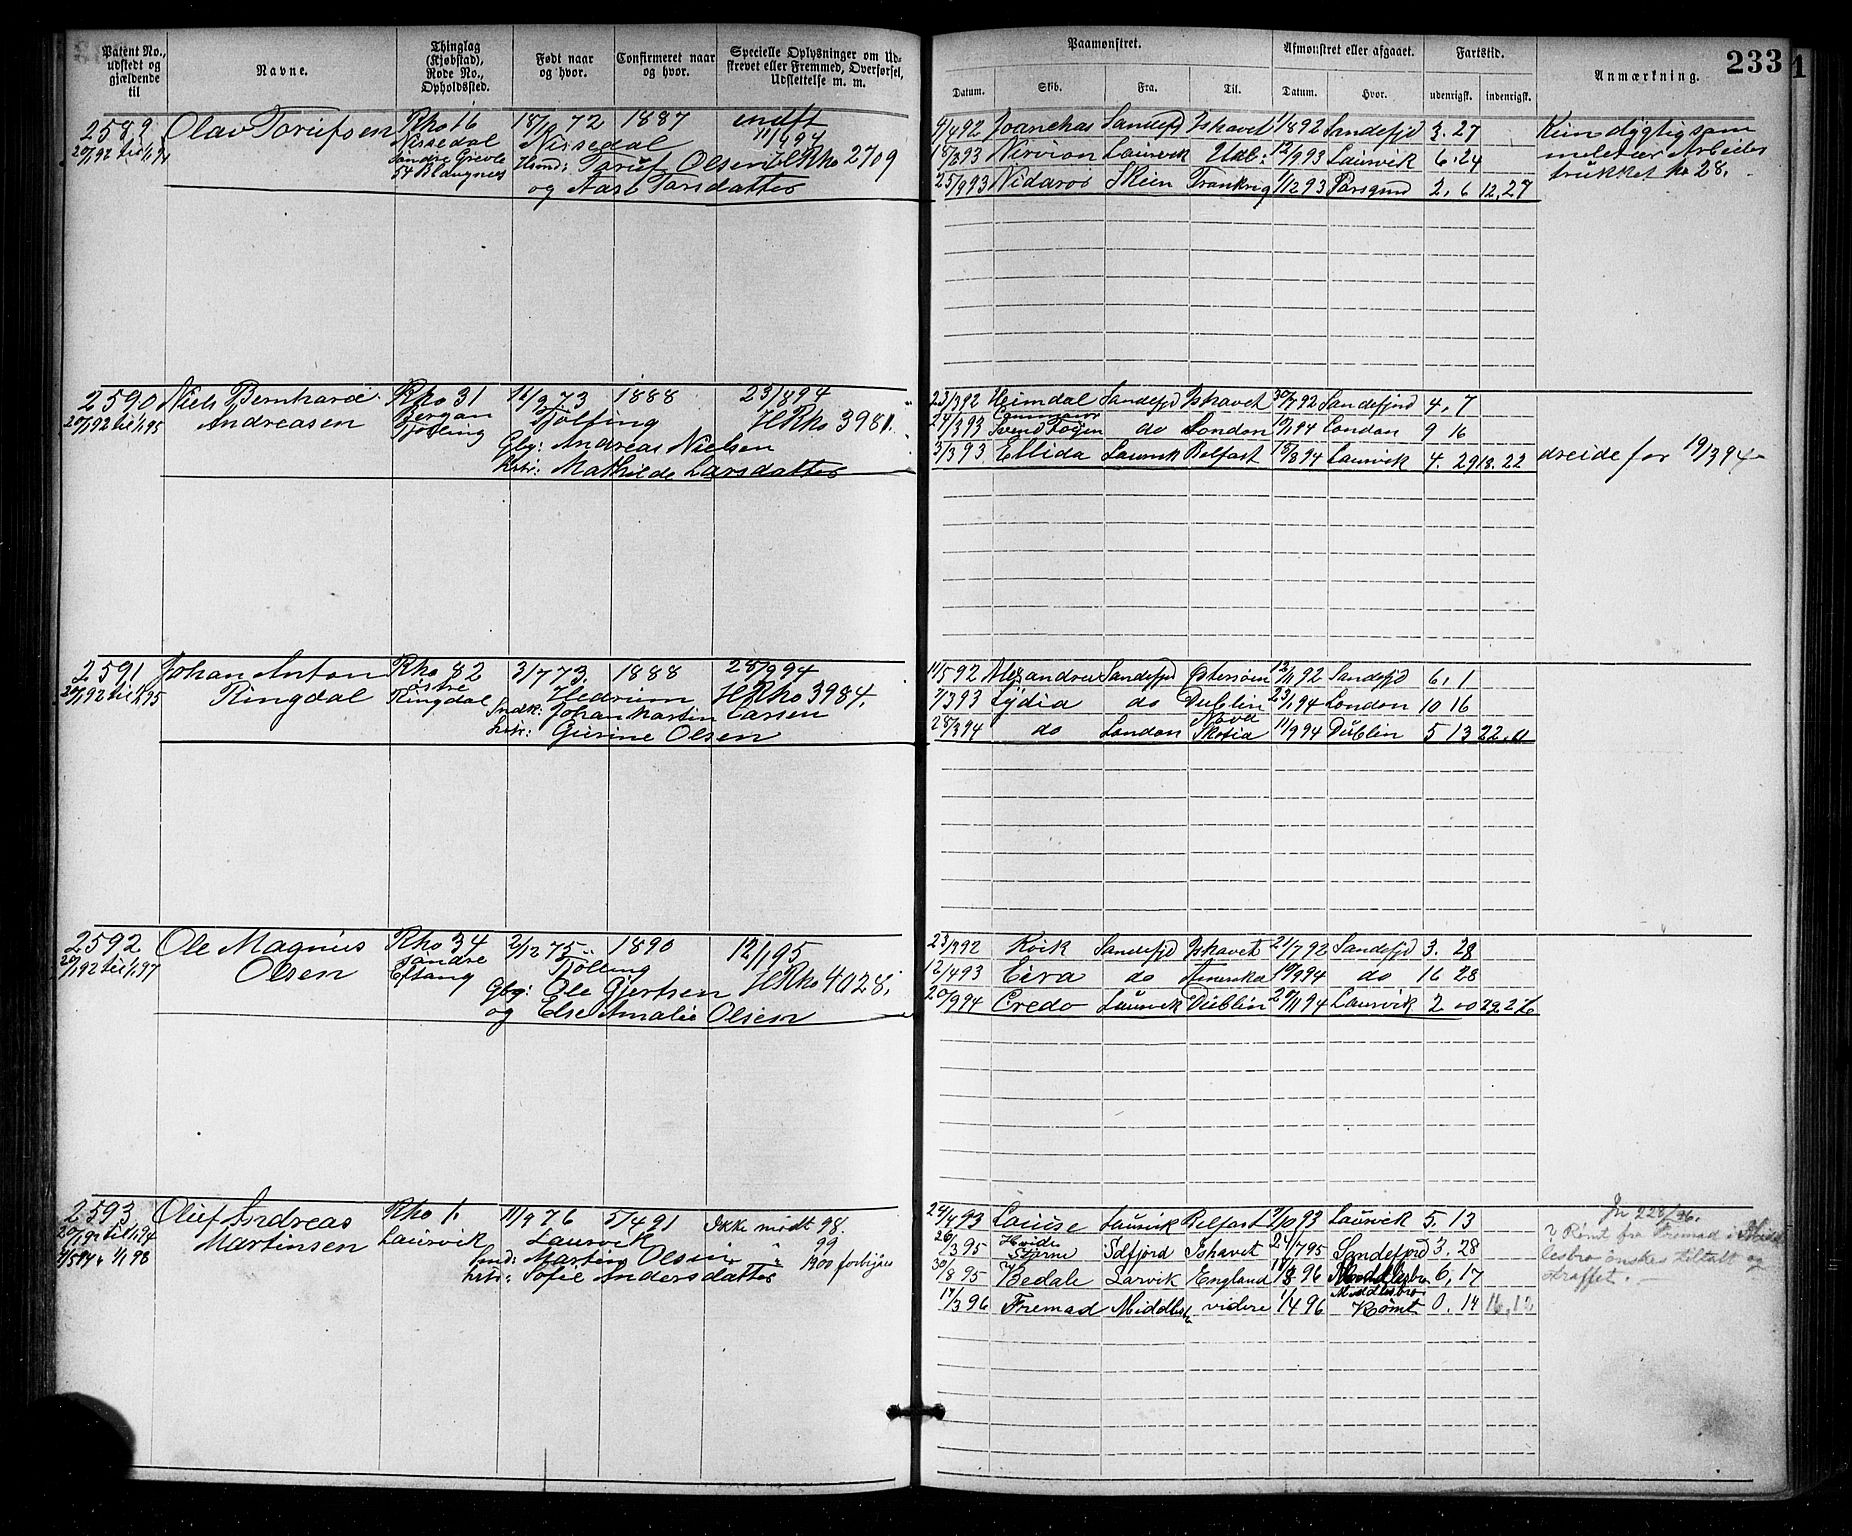 233
Patent No., udstedt og gjældende til
Navne.
Thinglag (Kjøbstad), Rode No., Opholdssted.
Født naar og hvor.
Confirmeret naar og hvor.
Specielle Oplysninger om Udskrevet eller Fremmed, Overførsel, Udslettelse m. m.
Paamønstret.
Afmønstret eller afgaaet.
Fartstid.
Anmærkning.
Datum. Skib. Fra. Til. Datum. Hvor. udenrigsk. indenrigsk.
2589 Olav Torufsen Rno 16 18/10 72 1887
20/1 92 til 1/1 94 Nissedal Nissedal 11/4 94
Søndre 2709
Toruf Olsen
og Aase Torsdatter
4/4 92 Sandefjd Ishavet 1/8 92 Sandefjd 3. 27
Laurvik 12/9 93 Laurvik 6. 24
25/9 93 Nidaros Skien 1/12 93 2. 6 12. 27
Kun dygtig som
28.
2590 Niels Bernhard Rno 31 16/9 73 1888 23/4 94
20/1 92 til 1/1 95 Andreasen Bergan Tjølling HRno 3981.
Tjølling Gbr: Andreas Nielsen
Mathilde Larsdatter
23/3 92 Heimdal Sandefjd Ishavet 30/7 92 Sandefjord 4, 7
Svend Føyen do London London 9 16
3/3 93 Ellida Laurvik Belfast 15/3 94 Laurvik 4. 29 18. 22
for 19/3 94
2591 Johan Anton Rno 82 31/7 73. 1888 28/9 94
20/1 92 til 1/1 95 Ringdal østre Hedrum HRno 3984.
Ringdal Johan Martin Larsen
Gurine Olsen
11/5 92 Sandefjd Østersøen 12/11 92 Sandefjd 6, 1
7/3 93 Lydia do Dublin 23/1 94 London 10 16
28/3 94 do London Nova Skotia 11/9 94 Dublin 5 13 22. 0
2592 Ole Magnus Rno 34 2/12 75. 1890 12/1 95
20/1 92 til 1/1 97 Olsen søndre Tjølling HRno 4028.
Eftang Gbr: Ole Gjertsen
og Else Amalie Olsen
23/3 92 Kvik Sandefjd Ishavet 21/7 92 Sandefjd 3. 28
12/4 93 Eira do Amerika 10/9 94 do 16 28
20/9 94 Credo Laurvik Dublin 20/11 94 Laurvik 2 00 22. 26
2593 Oluf Andreas Rno 1. 11/9 76 5/4 91 Ikke mødt 98.
20/1 92 til 1/1 94 Martinsen Laurvik Laurvik " 99
1/1 98 Martin Olsen " 1900
Sofie Andersdatter
24/4 93 Louise Laurvik Belfast 7/10 93 Laurvik 5. 13
26/3 95 Hvide Stjerne Sdfjord Ishavet 24/7 95 Sandefjord 3. 28
30/8 95 Bedale Larvik England 3 96 Middlesbro 6, 17
17/3 96 Fremad Middlesbro videre 1/4 96 Middlesbro Rømt 0. 14 16, 12
Jn 228/96.
Rømt fra Fremad i Middlesbro ønskes tiltalt og straffet.